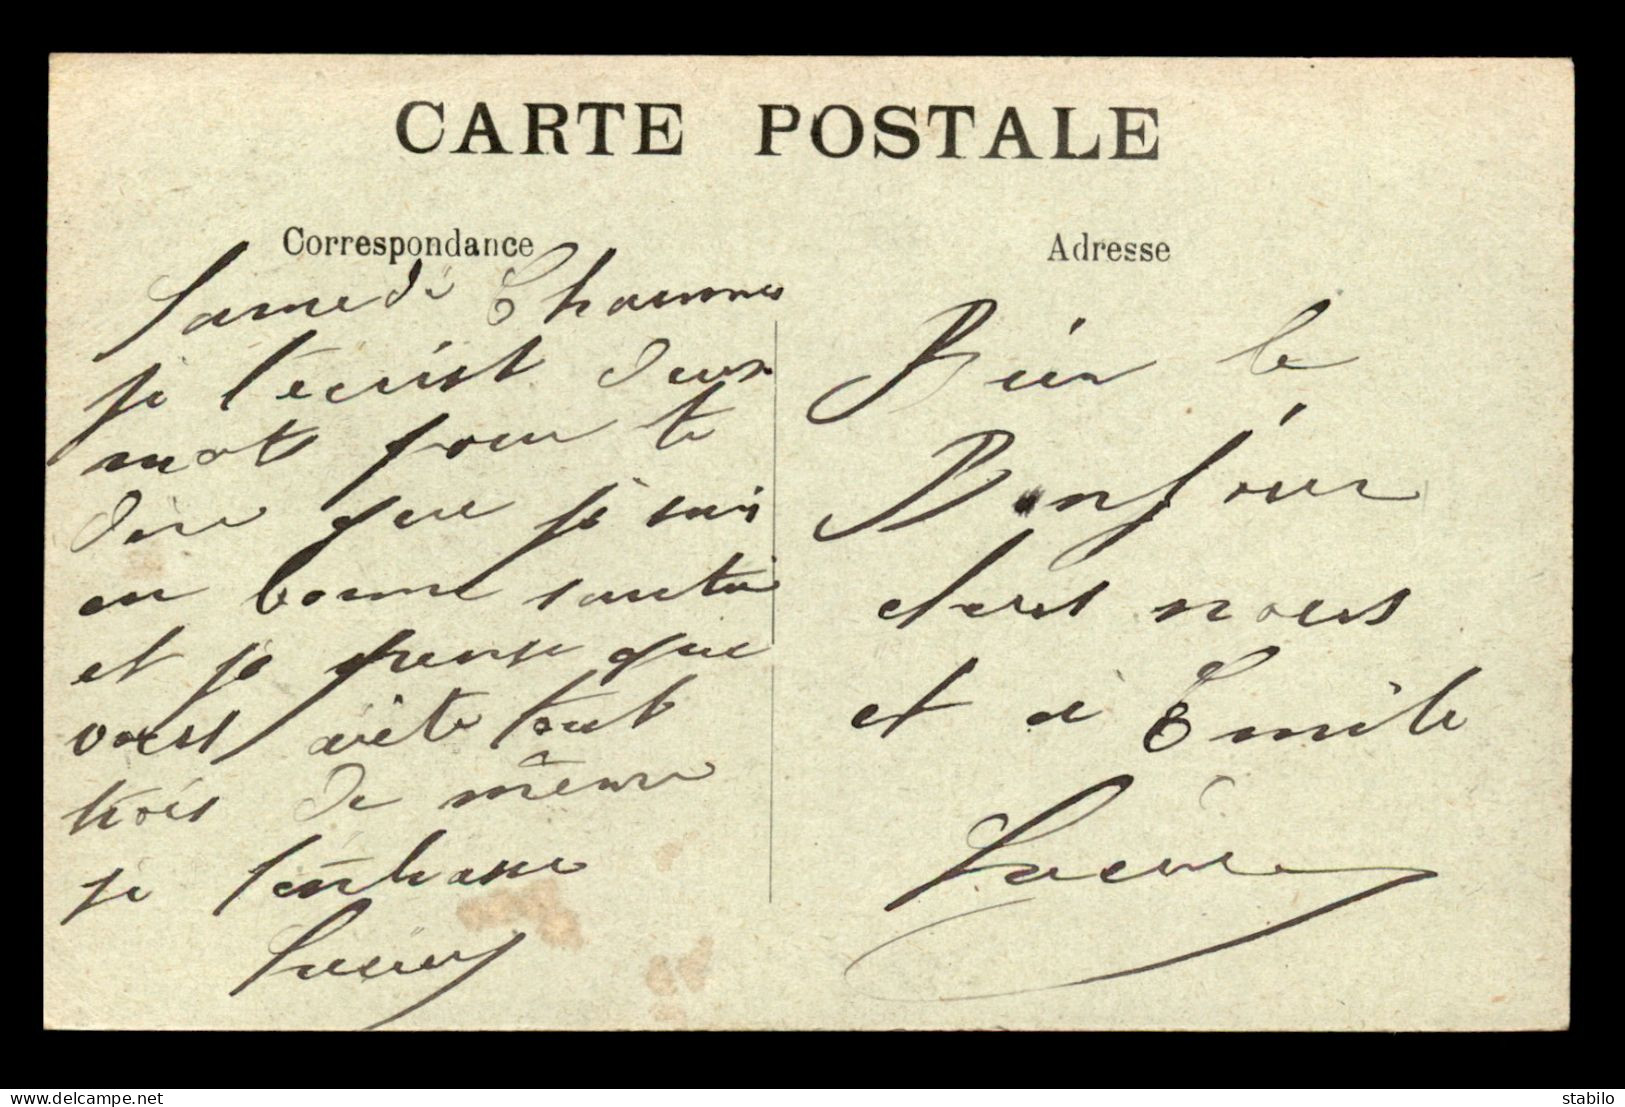 CARTE POSTALE
Correspondance
Samedi Chaunes
je t'écrist deux
mots pour te
dire que je suis
en bonne santée
et je pense que
vous ète tout
trois de mème
je t'embrasse
Lucien
Adresse
Bien le
Bonjour
chers nous
et a Emile
Lucien
www.delcampe.net
stabilo